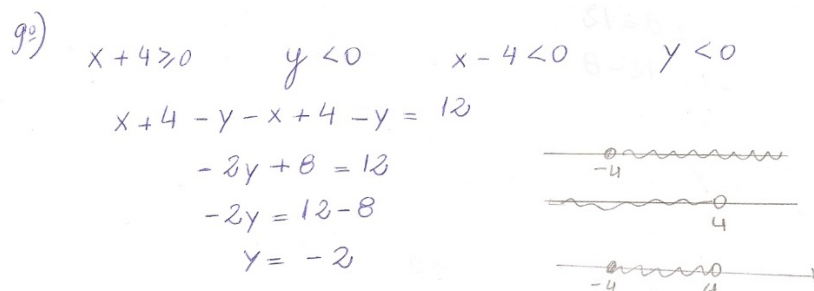 9º) x + 4 ≥ 0 y < 0 x - 4 < 0 y < 0
x + 4 - y - x + 4 - y = 12
- 2y + 8 = 12
- 2y = 12 - 8
y = - 2
-4
4
-4 4